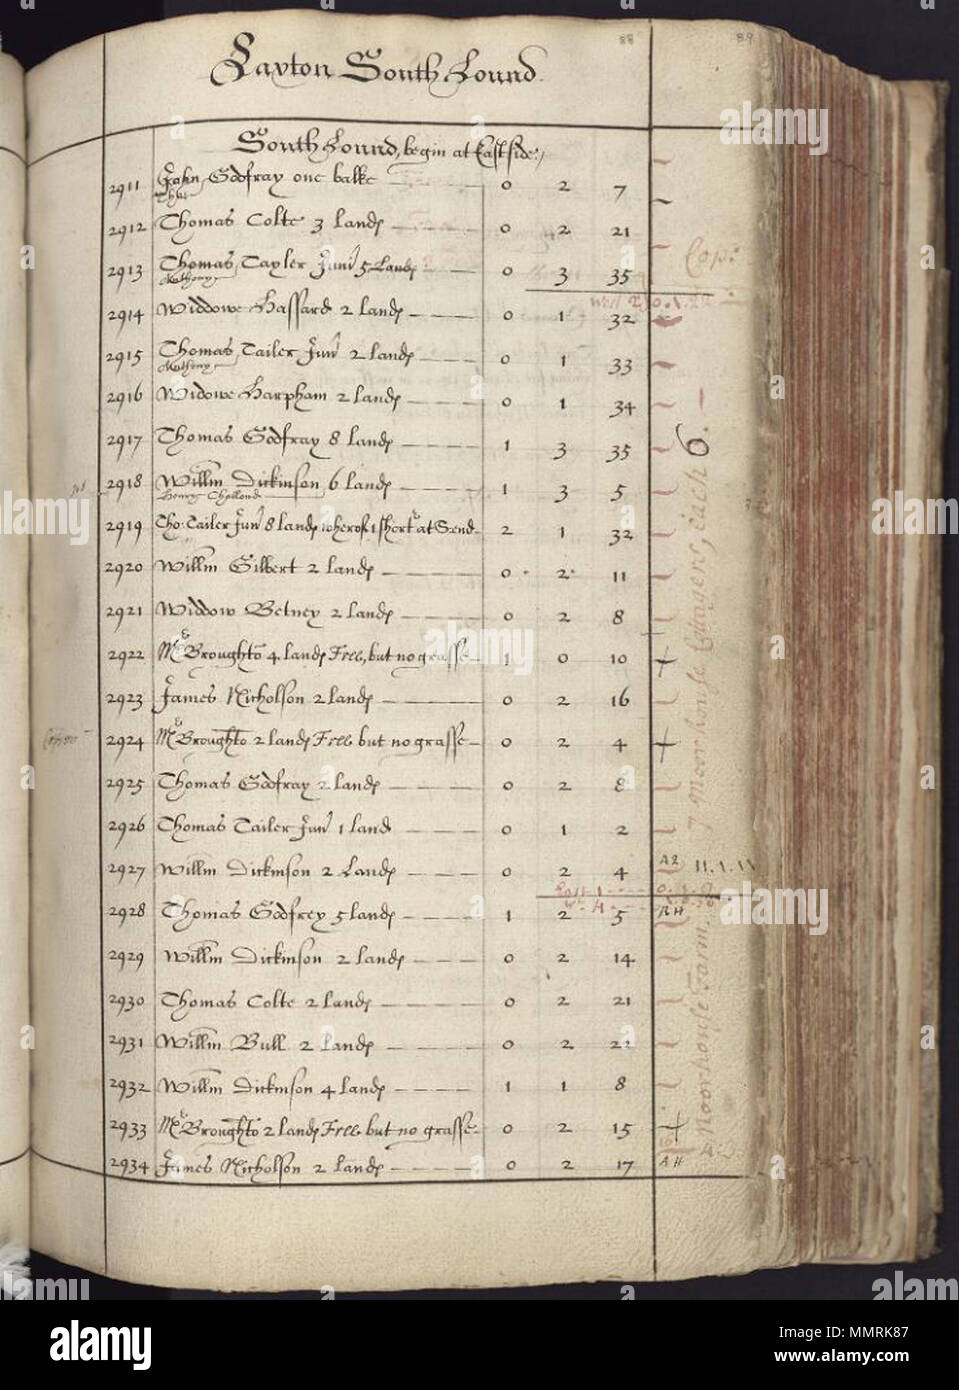 88
89
Laxton South Lound
South Lound, begin at East side
2911 John Godfray one balke 0 2 7
Tho:
2912 Thomas Colte 3 lands 0 2 21
2913 Thomas Tayler Jun 5 Lands 0 3 35
Anthony
Cop:
2914 Widdowe Hassard 2 lands 0 1 32
2915 Thomas Tailer Jun 2 lands 0 1 33
Anthony
2916 Widowe Harpham 2 lands 0 1 34
2917 Thomas Godfray 8 lands 1 3 35
2918 Willm Dickinson 6 lands 1 3 5
Henry Chelland
2919 Tho: Tailer Jun 8 lands wherof 1 short at S:end 2 1 32
2920 Willm Gilbert 2 lands 0 2 11
2921 Widdow Betney 2 lands 0 2 8
2922 Mr Broughto 4 lands Free, but no grasse 1 0 10
2923 James Nicholson 2 lands 0 2 16
2924 Mr Broughto 2 lands Free but no grasse 0 2 4
2925 Thomas Godfray 2 lands 0 2 8
2926 Thomas Tailer Jun 1 land 0 1 2
2927 Willm Dickinson 2 Lands 0 2 4
A2
2928 Thomas Godfrey 5 lands 1 2 5
AH
2929 Willm Dickinson 2 lands 0 2 14
2930 Thomas Colte 2 lands 0 2 21
2931 Willm Bull 2 lands 0 2 22
2932 Willm Dickinson 4 lands 1 1 8
2933 Mr Broughto 2 lands Free but no grasse 0 2 15
2934 James Nicholson 2 lands 0 2 17
AH
7 Moorhouse Cotagers, each 6.
Moorhouse Farm.
alamy
Image ID: MMRK87
www.alamy.com